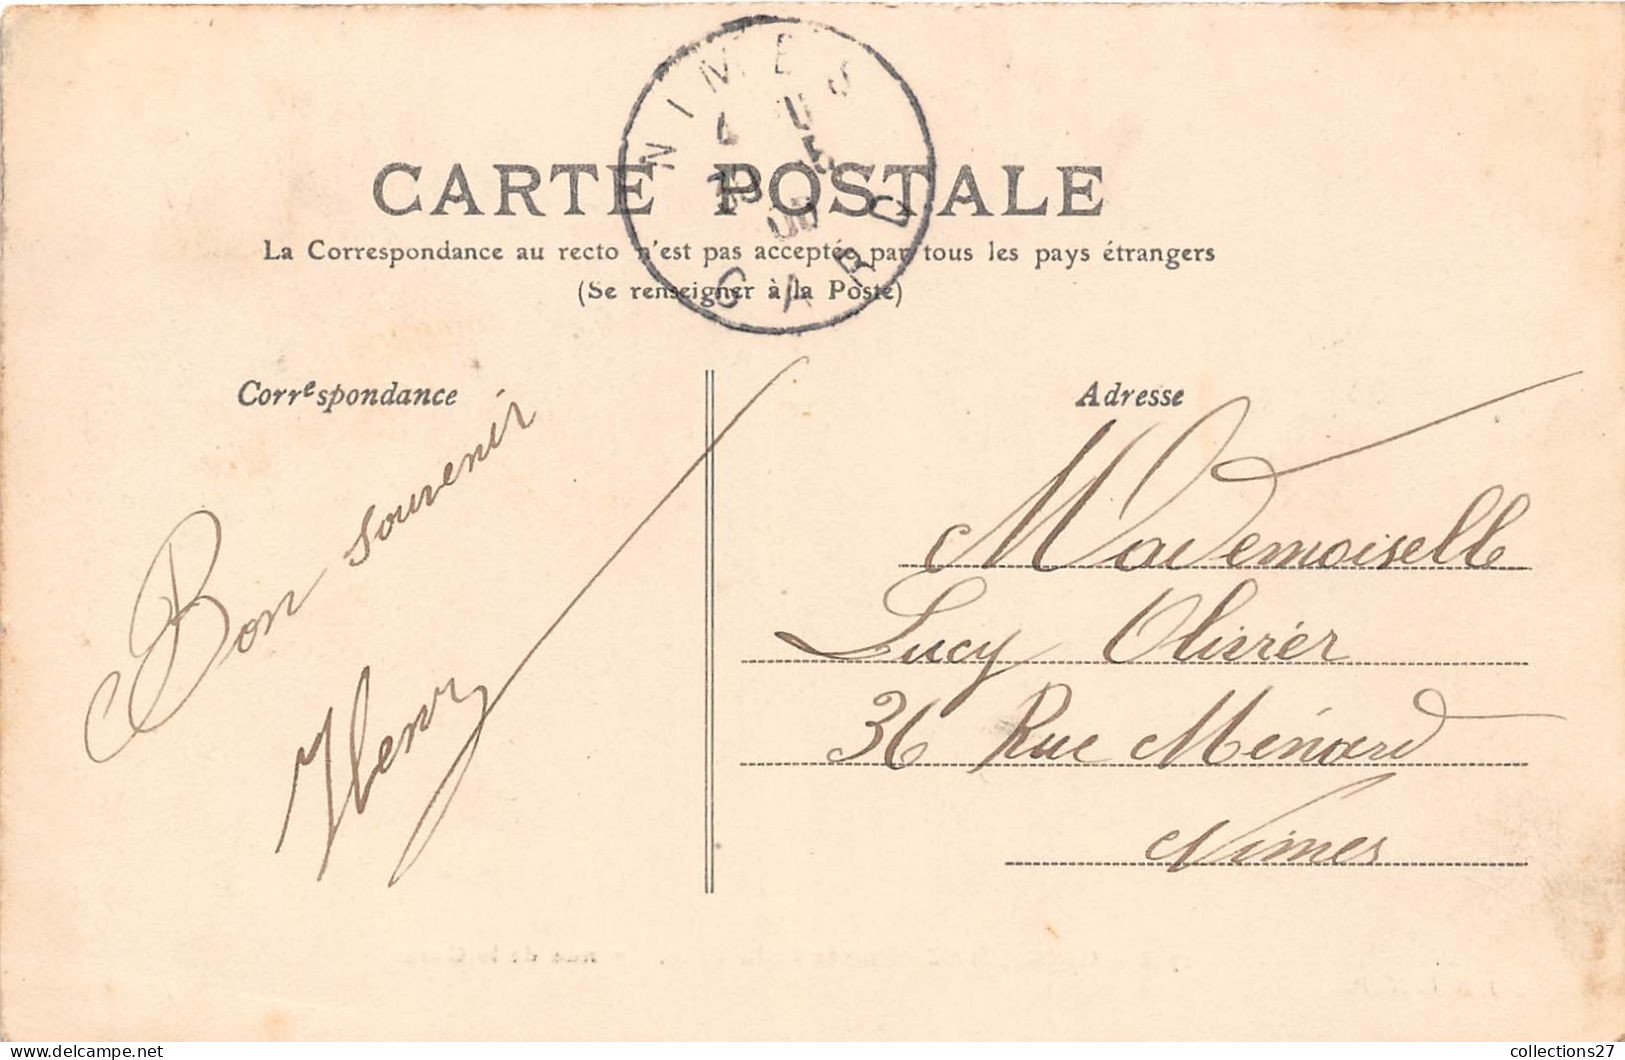 NIMES
GARD
CARTE POSTALE
La Correspondance au recto n'est pas acceptée par tous les pays étrangers
(Se renseigner à la Poste)
Correspondance
Bon souvenir
Henry
Adresse
Mademoiselle
Lucy Olivier
36 Rue Ménard
Nimes
collections27